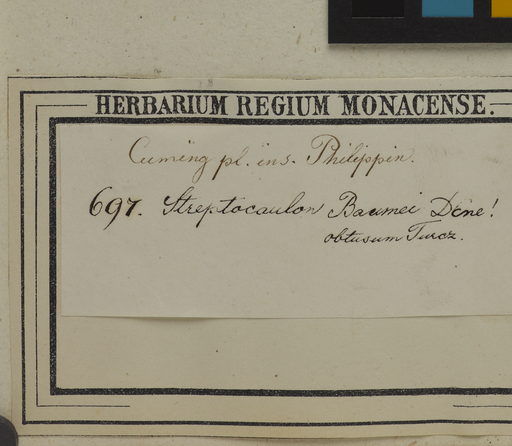 HERBARIUM REGIUM MONACENSE.
Cuming pl. ins. Philippin.
697. Streptocaulon Baumei Dcne!
obtusum Turcz.